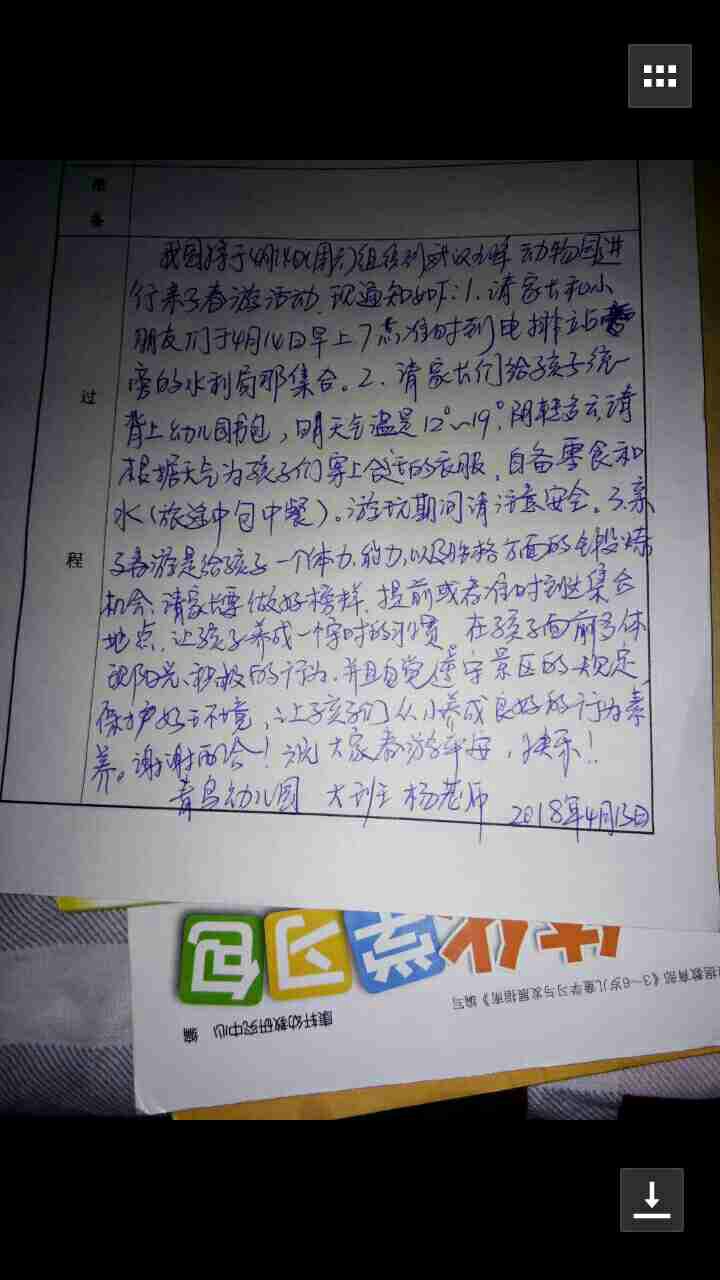 准
备
过
程
我园将于4月14日(周六)组织到武汉九峰动物园进
行亲子春游活动,现通知如下:1.请家长和小
朋友们于4月14日早上7点准时到电排站
旁的水利局那集合。2.请家长们给孩子统一
背上幼儿园书包,明天气温是12°~19°,阴转多云,请
根据天气为孩子们穿上合适的衣服,自备零食和
水(旅途中包中餐)。游玩期间请注意安全。3.亲
子春游是给孩子一个体力,能力,以及性格方面的锻炼
机会,请家长要做好榜样,提前或者准时到达集合
地点,让孩子养成一个守时的习惯,在孩子面前多体
现阳光、积极的行为,并且自觉遵守景区的规定,
保护好环境,让孩子们从小养成良好的行为素
养。谢谢配合!祝大家春游平安,快乐!
青鸟幼儿园 大班 杨老师 2018年4月13日
学习包
教育部《3~6岁儿童学习与发展指南》编写
康轩幼教研究中心 编